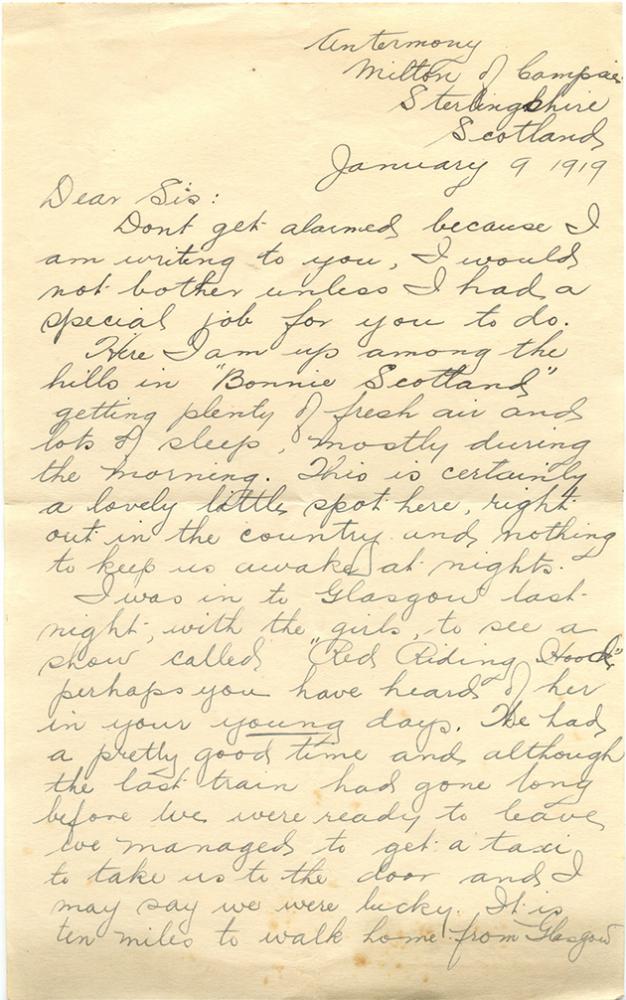 Antermony
Milton of Campsie
Sterlingshire
Scotland
January 9 1919
Dear Sis:
Dont get alarmed because I
am writing to you, I would
not bother unless I had a
special job for you to do.
Here I am up among the
hills in "Bonnie Scotland"
getting plenty of fresh air and
lots of sleep, mostly during
the morning. This is certainly
a lovely little spot here, right
out in the country and nothing
to keep us awake at nights.
I was in to Glasgow last
night, with the girls, to see a
show called "Red Riding Hood"
perhaps you have heard of her
in your young days. We had
a pretty good time and although
the last train had gone long
before we were ready to leave
we managed to get a taxi
to take us to the door and I
may say we were lucky. It is
ten miles to walk home from Glasgow